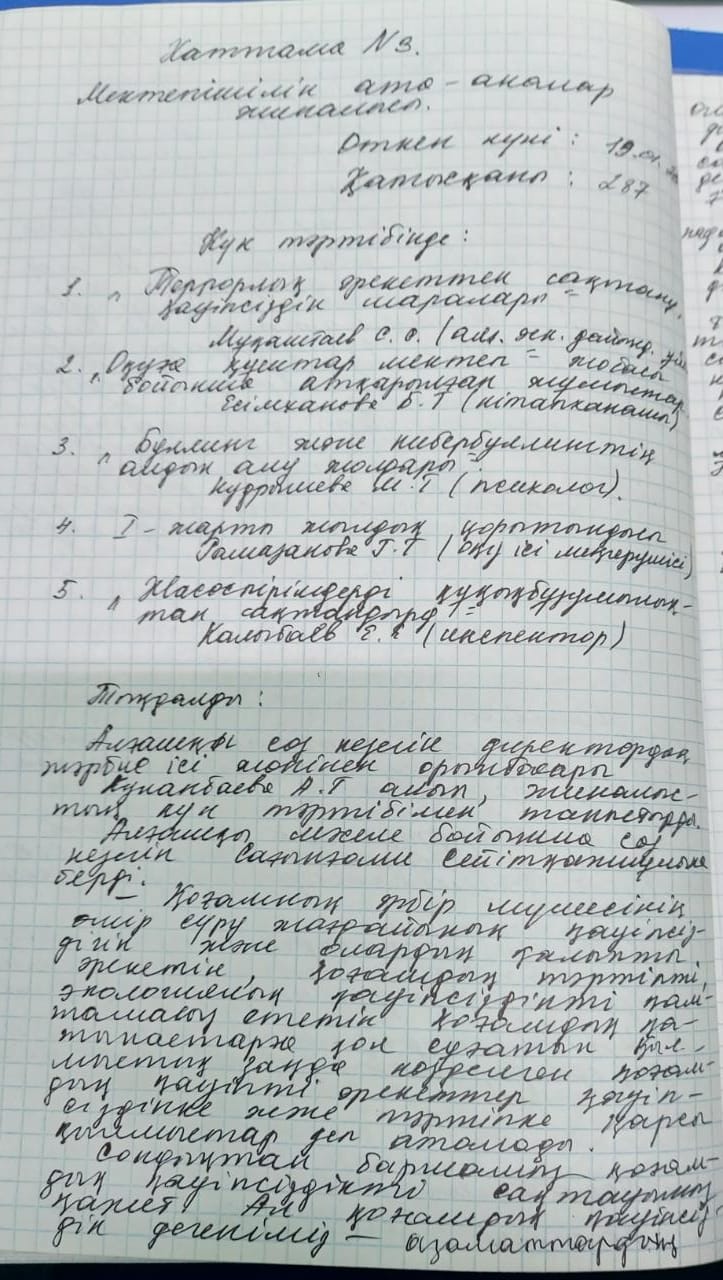 Хаттама N 3.
Мектепішілік ата-аналар
жиналысы.
Өткен күні: 19.01.
Қатысқаны: 287
Күн тәртібінде:
1. "Террорлық әрекеттен сақтану,
қауіпсіздік шаралары"
Мұқаштаев С.С. (алғ. әск. дайынд.
2. "Оқуға құштар мектеп" жобасы
бойынша атқарылған жұмыстар
Есімханова Б.Т (кітапханашы)
3. "Буллинг және кибербуллингтің
алдын алу жолдары".
Кудрышева М.Т (психолог).
4. I-жарты жылдық қорытындысы
Рамазанова Г.Т (оқу ісі меңгерушісі)
5. "Жасөспірімдерді құқықбұзушылық-
тан сақтандыру"
Калыбаев Е.К (инспектор)
Тыңдалды:
Алғашқы сөз кезегін директордың
тәрбие ісі жөнінен орынбасары
Кунанбаева А.Т алып, жиналыс-
тың күн тәртібімен таныстырды.
Алғашқы мәселе бойынша сөз
кезегін Сағынғали Сейітқажиұлына
берді.
- Қоғамның әрбір мүшесінің
өмір сүру жағдайының қауіпсіз-
дігін және олардың қалыпты
әрекетін, қоғамдық тәртіпті,
экологиялық қауіпсіздікті қам-
тамасыз ететін қоғамдық қа-
тынастарға қол сұғатын қыл-
мыстық заңда көзделген қоғам-
дық қауіпті әрекеттер қауіп-
сіздікке және тәртіпке қарсы
қылмыстар деп аталады.
Сондықтан баршамыз қоғам-
дық қауіпсіздікті сақтауымыз
қажет. Ал қоғамдық қауіпсіз-
дік дегеніміз - азаматтардың